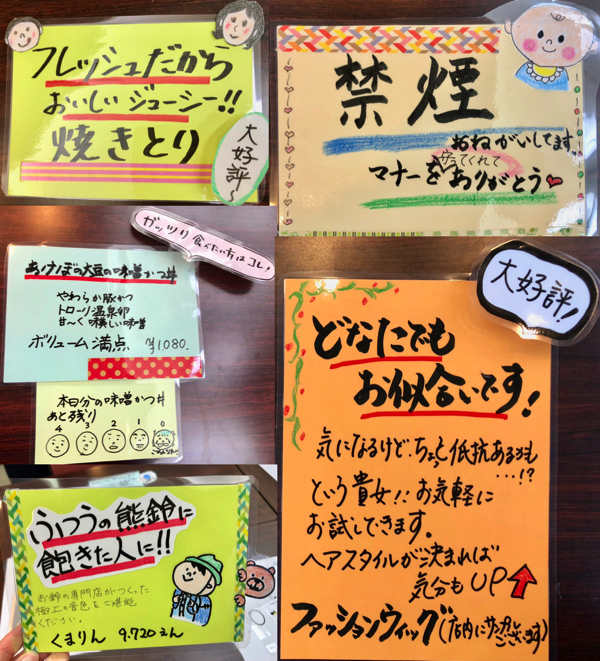 フレッシュだから
おいしいジューシー!!
焼きとり
大好評〜
禁煙
おねがいしてます。
守ってくれて
マナーを ありがとう
ガッツリ食べたい方はコレ!
あけぼの大豆の味噌かつ丼
やわらか豚かつ
トローリ温泉卵
甘〜く美味しい味噌
ボリューム満点、¥1,080.
本日分の味噌かつ丼
あと残り
4 3 2 1 0
ふつうの熊鈴に
飽きた人に!!
お鈴の専門店がつくった
極上の音色をご堪能
ください。
くまりん 9.720えん
大好評!
どなたでも
お似合いです!
気になるけど、ちょっと低抗あるかも
…!?
という貴女!!お気軽に
お試しできます。
ヘアスタイルが決まれば
気分もUP
ファッションウィッグ(店内にサンプルございます)